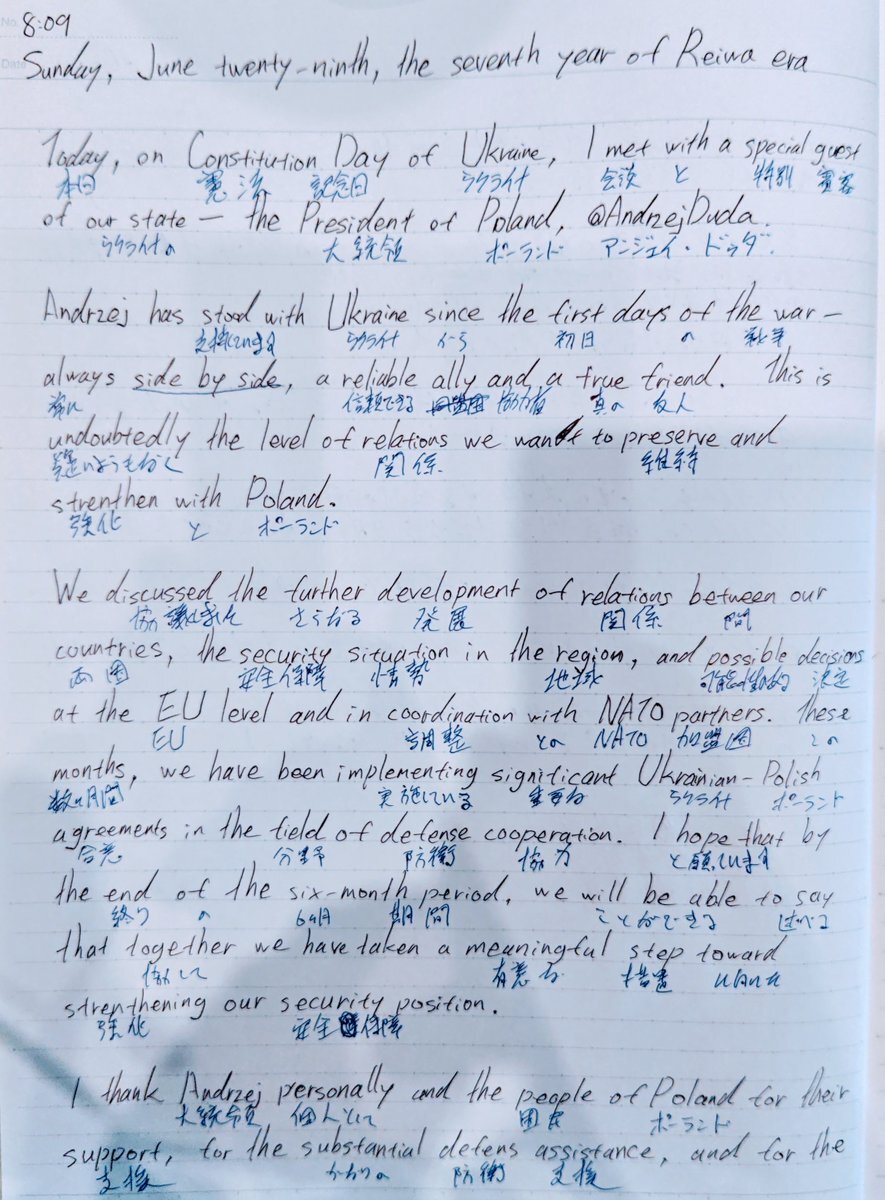 8:09
Sunday, June twenty-ninth, the seventh year of Reiwa era
Today, on Constitution Day of Ukraine, I met with a special guest
本日 憲法 記念日 ウクライナ 会談 と 特別 賓客
of our state — the President of Poland, @AndrzejDuda.
ウクライナの 大統領 ポーランド アンジェイ・ドゥダ
Andrzej has stood with Ukraine since the first days of the war —
支持しています ウクライナ から 初日 の 戦争
always side by side, a reliable ally and a true friend. This is
常に 信頼できる 協力者 真の 友人
undoubtedly the level of relations we want to preserve and
疑いようもなく 関係 維持
strenthen with Poland.
強化 と ポーランド
We discussed the further development of relations between our
協議しました さらなる 発展 関係 間
countries, the security situation in the region, and possible decisions
両国 安全保障 情勢 地域 可能性的 決定
at the EU level and in coordination with NATO partners. These
EU 調整 との NATO 加盟国 この
months, we have been implementing significant Ukrainian-Polish
数ヶ月間 実施している 重要な ウクライナ ポーランド
agreements in the field of defense cooperation. I hope that by
合意 分野 防衛 協力 と願っています
the end of the six-month period, we will be able to say
終り の 6ヶ月 期間 ことができる 述べる
that together we have taken a meaningful step toward
協して 有意な 措置
strenthening our security position.
強化 安全保障
I thank Andrzej personally and the people of Poland for their
大統領 個人として 国民 ポーランド
support, for the substantial defens assistance, and for the
支援 かなりの 防衛 支援